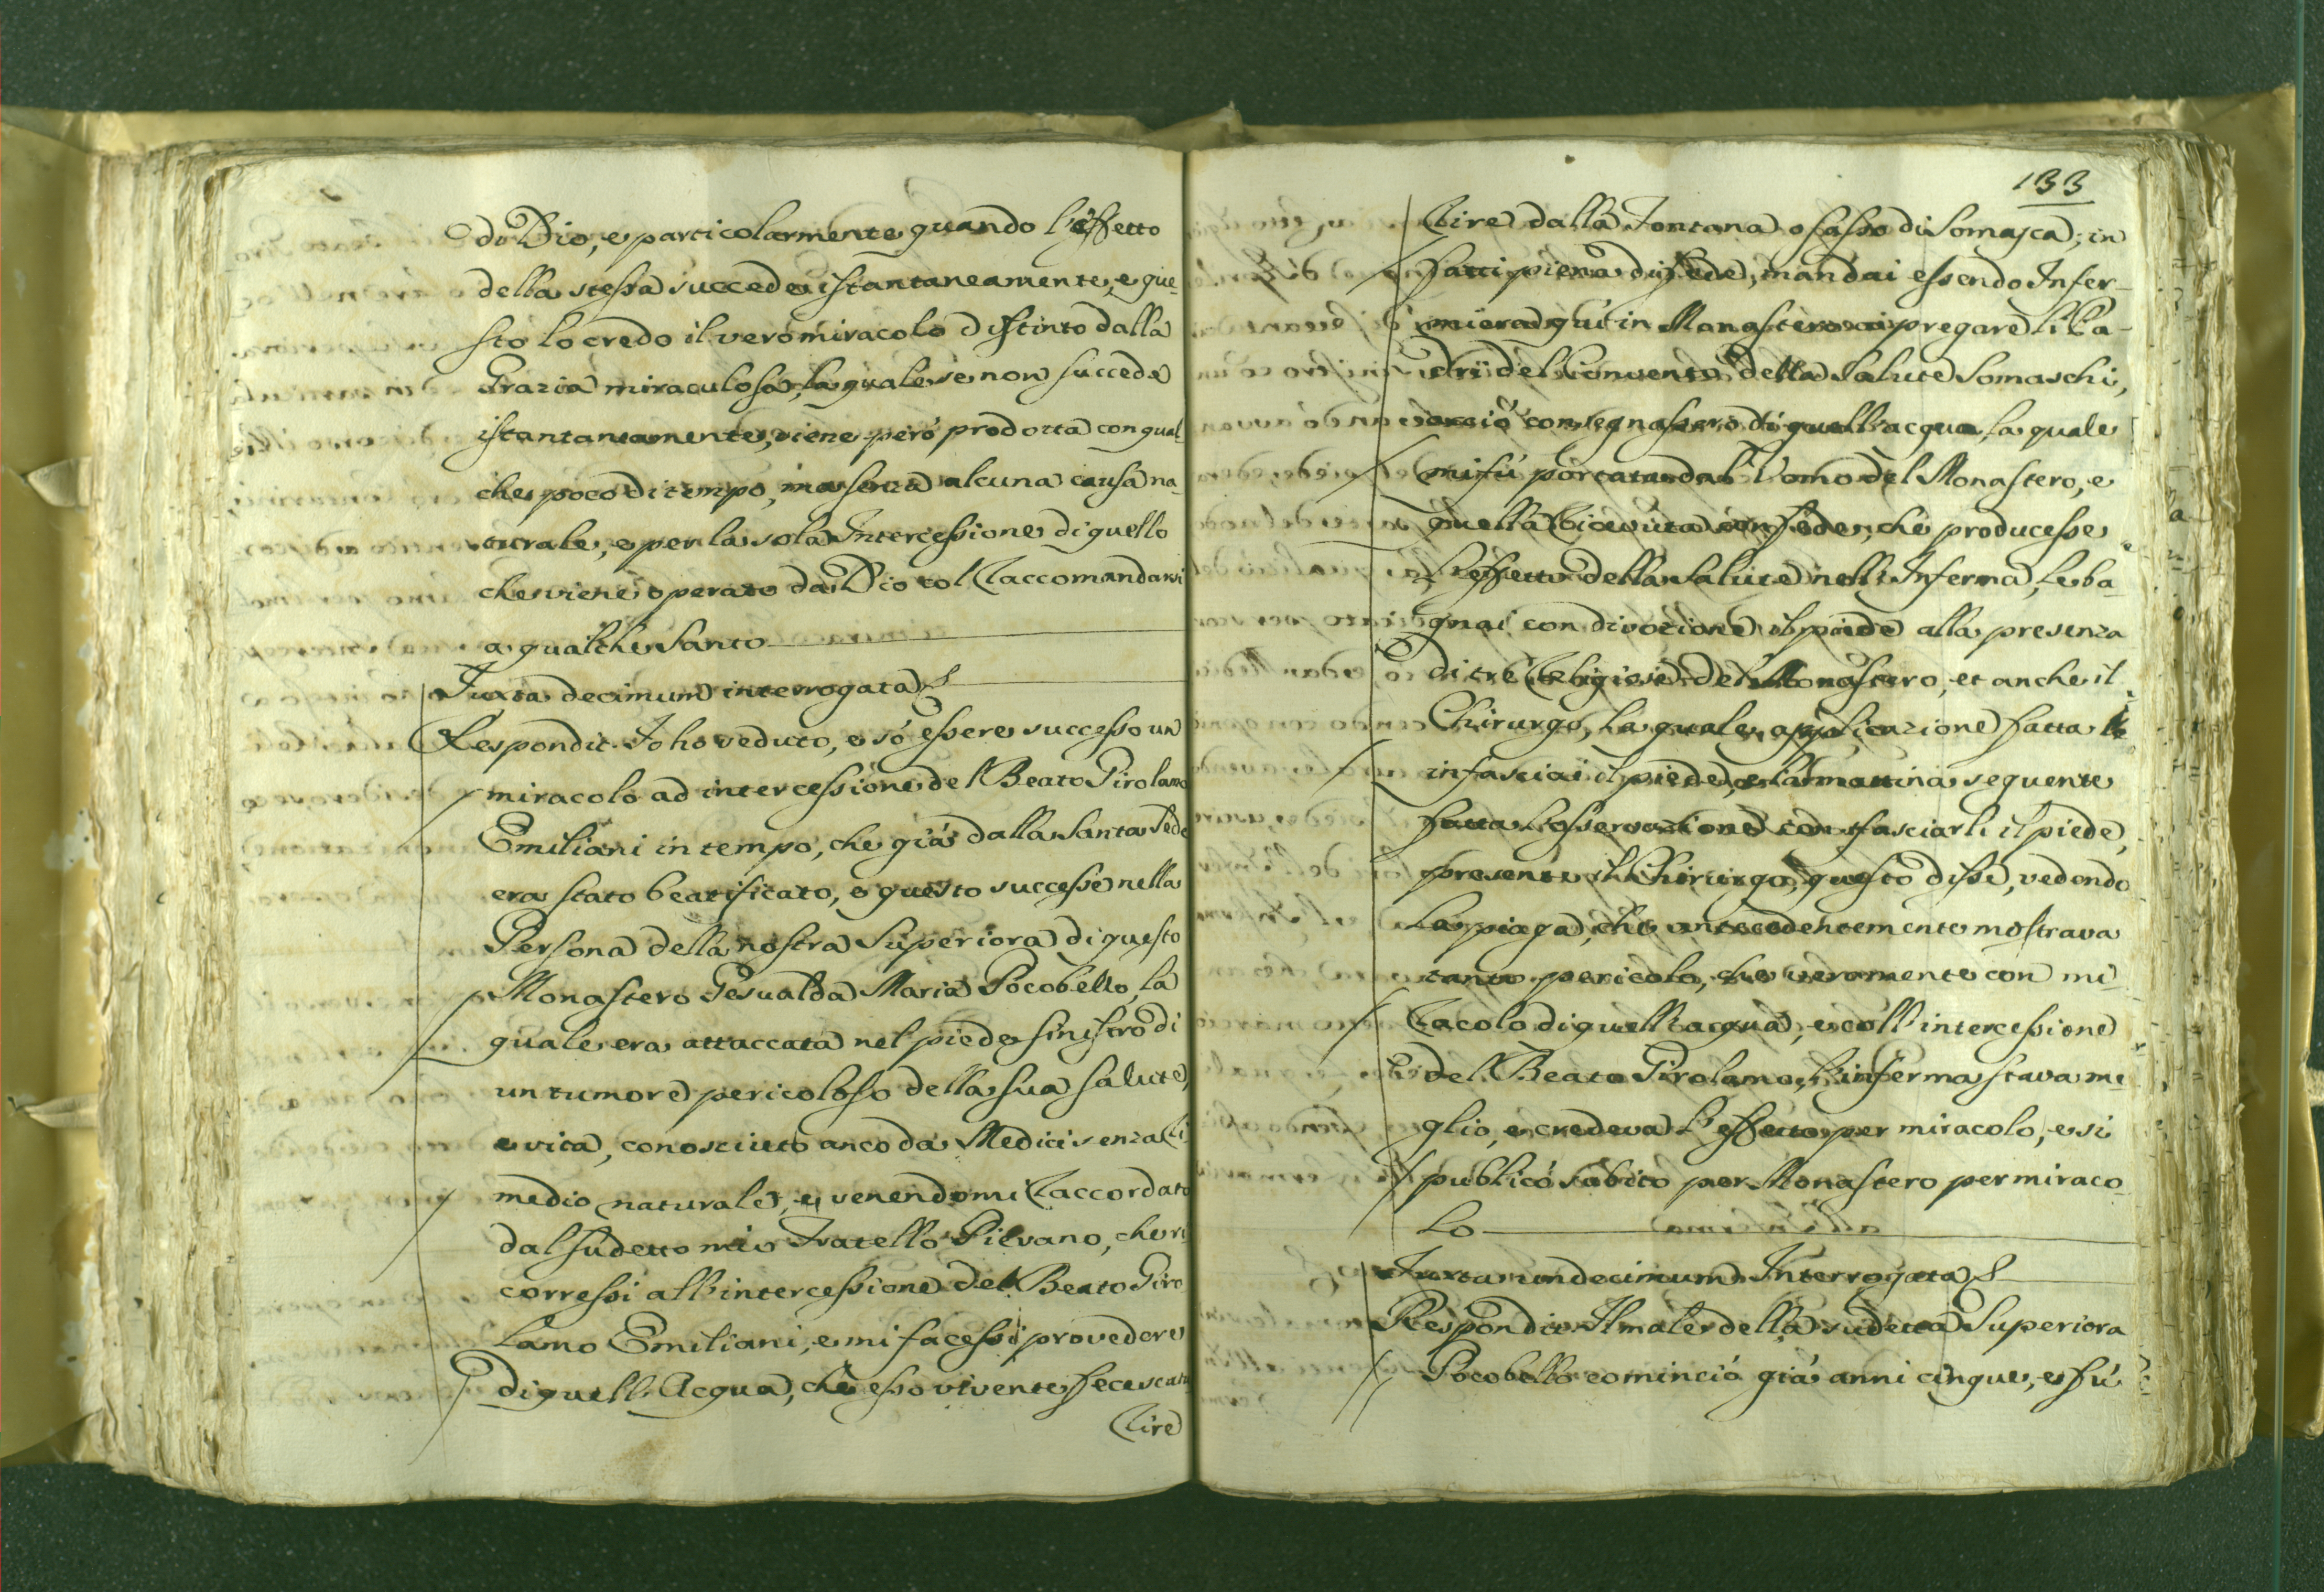 di Dio, e particolarmente quando l'effetto
della stessa succede istantaneamente, e que-
sto lo credo il vero miracolo distinto dalla
Grazia miraculosa, la quale se non succede
istantaneamente, viene però prodotta con qual-
che poco di tempo, ma senza alcuna causa na-
turale, e per la sola Intercessione di quello
che viene operato da Dio col Raccomandarsi
a qualche Santo
Juxta decimum interrogata
Respondit. Io ho veduto, e só essere successo un
miracolo ad intercessione del Beato Girolamo
Emiliani in tempo, che giá dalla Santa Sede
era stato beatificato, e questo successe nella
Persona della nostra Superiora di questo
Monastero Gesualda Maria Pocobello, la
quale era attaccata nel piede sinistro di
un tumore pericoloso della sua salute,
e vita, conosciuto anco da Medici senza Ri
medio naturale, e venendomi Raccordato
dal sudetto mio Fratello Pievano, che ri
corressi all'intercessione del Beato Giro
lamo Emiliani, e mi facessi provedere
di quell'Acqua, che esso vivente fece scatu
rire
133
rire dalla Fontana o sasso di Somasca; in
fatti piena di fede, mandai essendo Infer-
miera qui in Monastero a pregare li Pa-
dri del Convento della Salute Somaschi,
acció consegnassero di quell'acqua, la quale
mi fú portata dal Uomo del Monastero, e
quella Ricevuta con fede, che producesse
l'effetto della Salute nell'Inferma, le ba-
gnai con divozione il piede alla presenza
di tre Religiose del Monastero, et anche il
Chirurgo, la quale applicazione fatta
infasciai il piede, e la mattina seguente
fatta l'osservazione con sfasciarli il piede,
presente il Chirurgo, questo disse, vedendo
la piaga, che antecedentemente mostrava
tanto pericolo, che veramente con mi
racolo di quell'acqua, e coll'intercessione
del Beato Girolamo, l'inferma stava me
glio, e credeva l'effetto per miracolo, e si
publicó subito per Monastero per miraco
lo
Juxta undecimum Interrogata
Respondit. Il male della sudetta Superiora
Pocobello cominció giá anni cinque, e fú